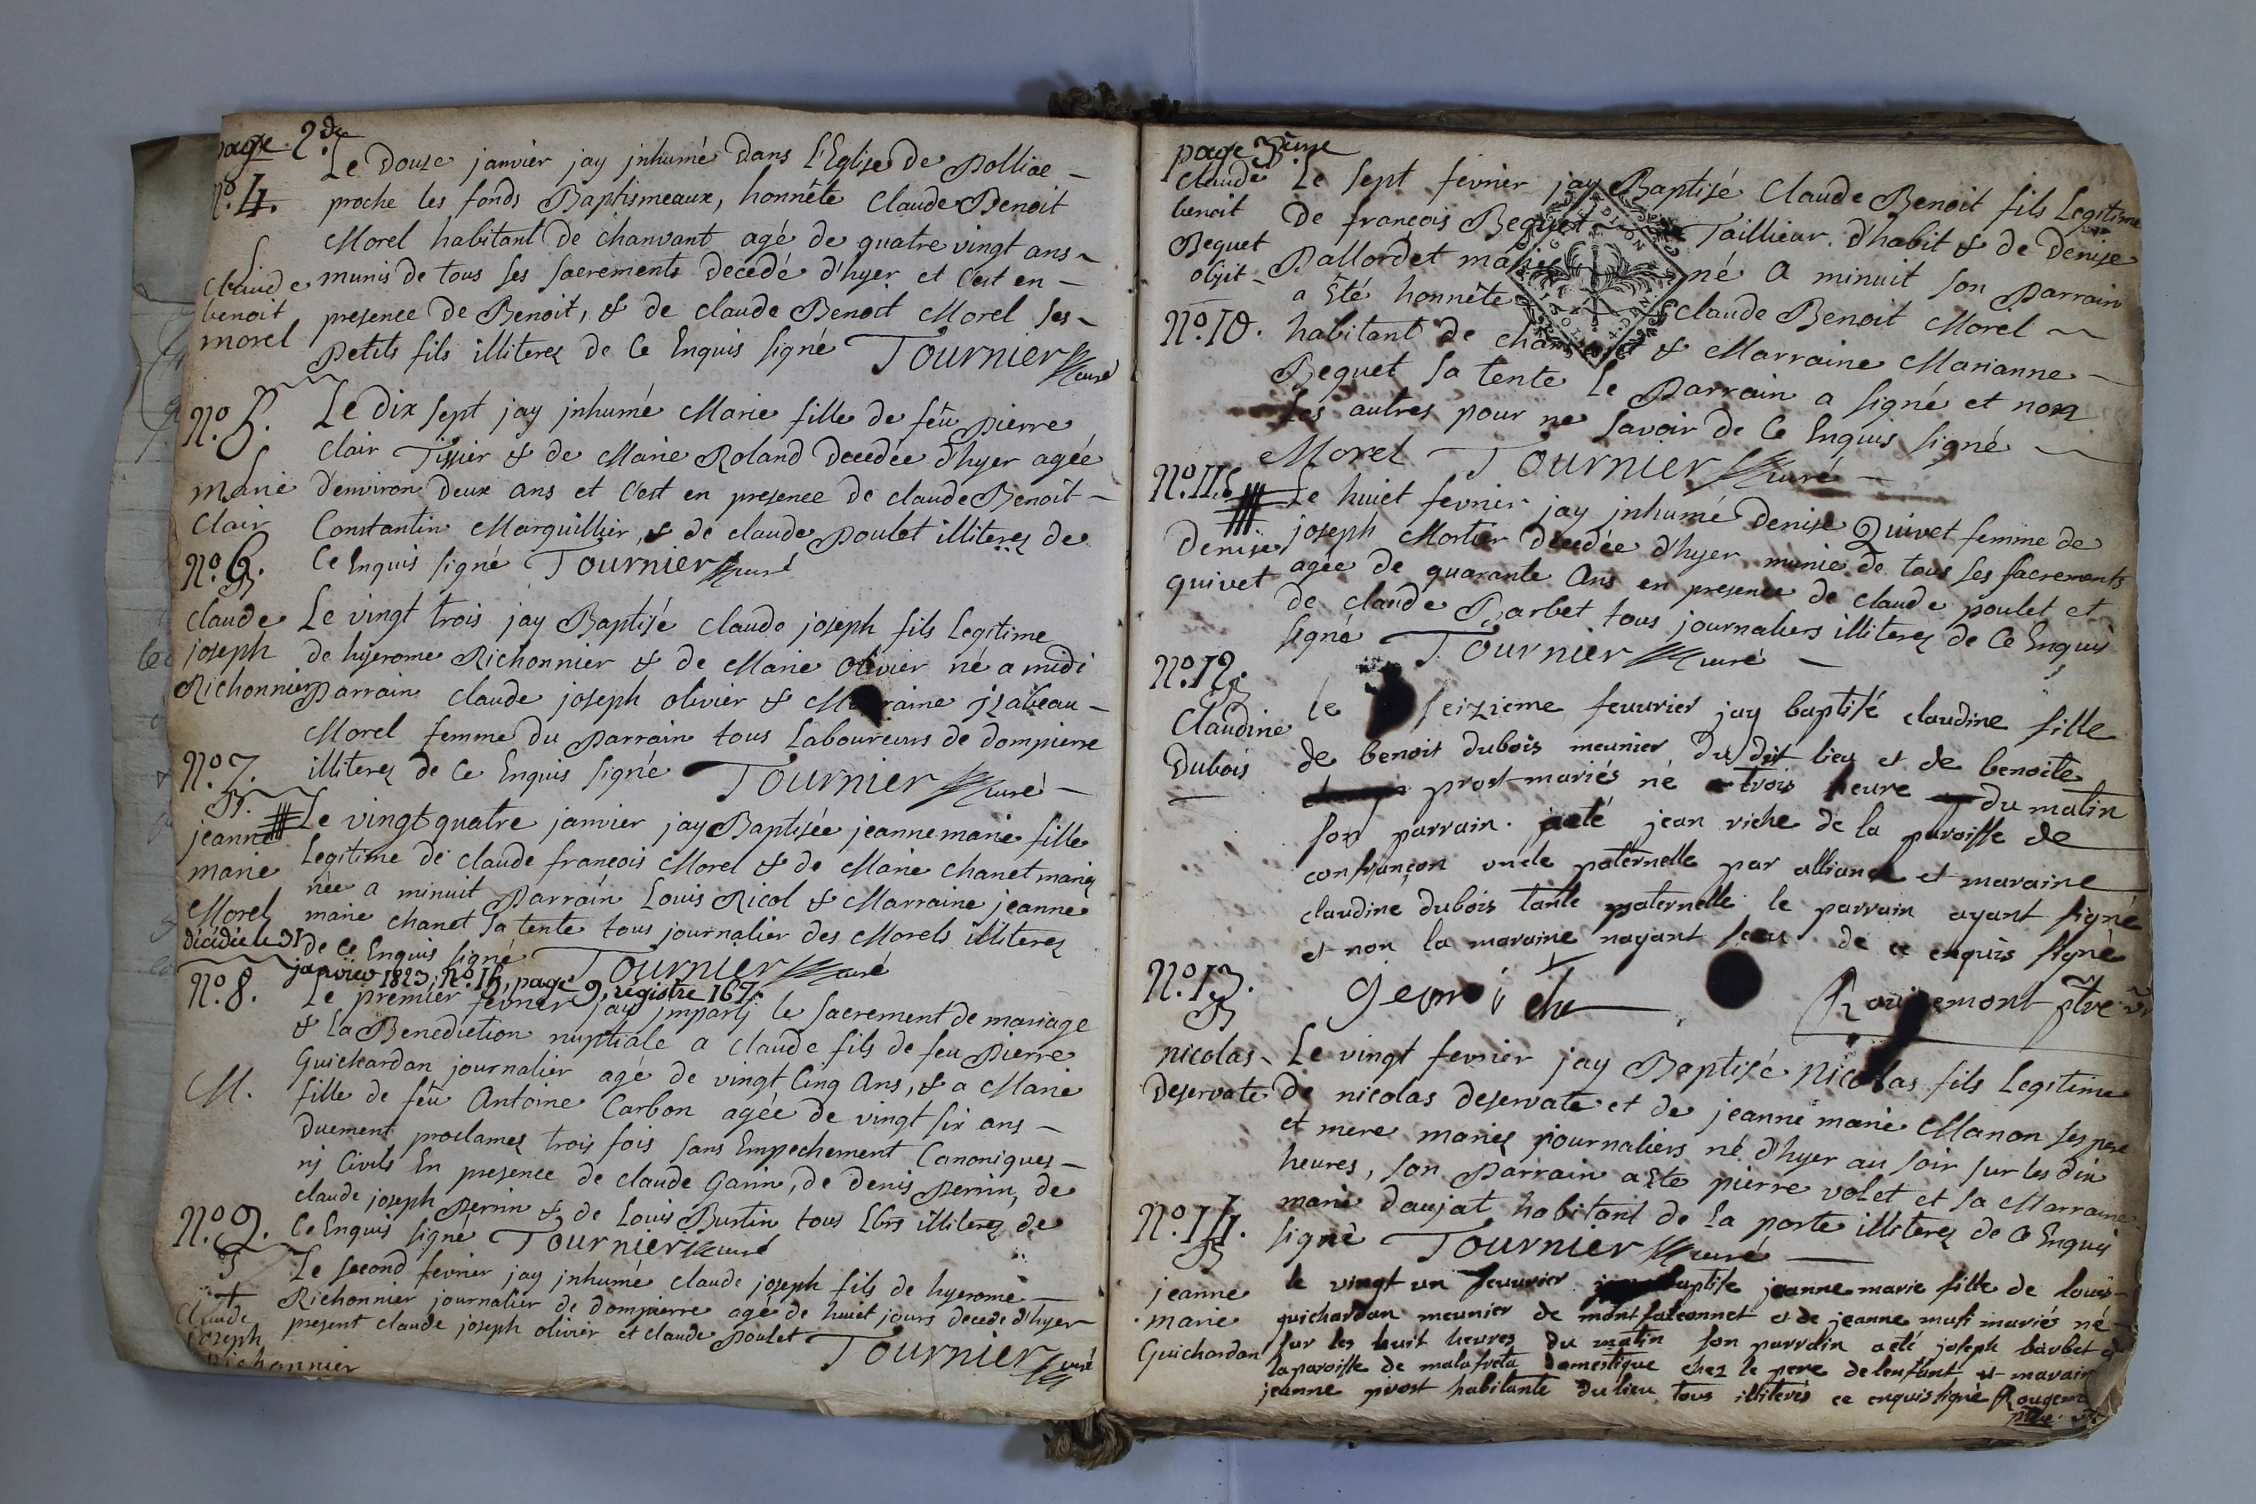 page 2de
No. 4.
Claude
benoit
morel
Le Douze janvier jay jnhumé Dans l'Eglise de Polliae
proche les fonds Baptismeaux, honnête Claude Benoit
Morel habitant De chanvant agé de quatre vingt ans
munis de tous ses sacrements Decedé d'hyer et C'est en
presence De Benoit, & de claude Benoit Morel ses
Petits fils illiterez de Ce Enquis signé Tournier curé
No. 5.
Marie
Clair
Le Dix sept jay jnhumé Marie fille de feu pierre
Clair Tissier & de Marie Roland Decedée d'hyer agée
d'environ Deux ans et C'est en presence de claude Benoit
Constantin Marquillier, & de claude Poulet illiterez de
Ce Enquis signé Tournier curé
No. 6.
B
claude
joseph
Richonnier
Le vingt trois jay Baptisé Claude joseph fils Legitime
de hyerome Richonnier & de Marie olivier né a midi
Parrain claude joseph olivier & Marraine jsabeau
Morel femme Du Parrain tous Laboureurs de Dompierre
illiterez de Ce Enquis signé Tournier curé
No. 7.
B.
jeanne
marie
Morel
décédée le 31
janvier 1823, No. 16, page 9, régistre 167.
Le vingt quatre janvier jay Baptisée jeanne marie fille
Legitime de claude françois Morel & de Marie Chanet mariez
née a minuit Parrain Louis Ricol & Marraine jeanne
marie chanet sa tente tous journalier des Morels illiterez
de Ce Enquis signé Tournier curé
No. 8.
M.
Le premier fevrier jay jmparti le sacrement de mariage
& La Benediction nuptiale a claude fils de feu Pierre
Guichardan journalier agé de vingt Cinq Ans, & a Marie
fille de feu Antoine Carbon agée de vingt six ans
Duement proclamez trois fois sans Empechement Canoniques
nj Civils En presence de claude Garin, de Denis Perrin, de
claude joseph Perrin & de Louis Burtin tous Lbrs illiterez de
Ce Enquis signé Tournier curé
No. 9.
Claude
joseph
Richonnier
Le second fevrier jay jnhumé claude joseph fils de hyerome
Richonnier journalier de dompierre agé de huict jours decedé d'hyer
present claude joseph olivier et claude Poulet Tournier curé
page 3eme
Claude
benoit
Bequet
obiit
No. 10.
Le sept fevrier jay Baptisé Claude Benoit fils Legitime
De françois Bequet Taillieur d'habit & de Denise
Pallordet mariez né a minuit son Parrain
a Eté honnête Claude Benoit Morel
habitant de chanvant & Marraine Marianne
Bequet sa tente Le Parrain a signé et non
Les autres pour ne savoir de Ce Enquis signé
Morel Tournier curé
No. 11.
Denise
quivet
Le huict fevrier jay jnhumé Denise Quivet femme de
joseph Mortier Decedée d'hyer munie de tous ses sacrements
agée de quarante Ans en presence de claude poulet et
de claude Barbet tous journaliers illiterez de Ce Enquis
signé Tournier curé
No. 12.
B
Claudine
Dubois
le seizieme feuurier jay baptisé claudine fille
de benoit dubois meunier du dit lieu et de benoite
prost mariés né a trois heure du matin
son parrain a eté jean riche de la paroisse de
confrançon oncle paternelle par alliance et maraine
claudine dubois tante paternelle le parrain ayant signé
et non la maraine nayant sceu de ce enquis signé
Rougemont ptre vic
No. 13.
B
nicolas
Deservate
Le vingt fevrier jay Baptisé Nicolas fils Legitime
de nicolas Deservate et de jeanne marie Manon ses pere
et mere mariez journaliers né d'hyer au soir sur les dix
heures, son Parrain a Ete pierre volet et sa Marraine
marie daujat habitant de la porte illiterez de Ce Enquis
signé Tournier curé
No. 14.
B
jeanne
marie
Guichardan
le vingt un feuurier jay baptisé jeanne marie fille de louis
guichardan meunier de montfalconnet et de jeanne musi mariés né
sur les huit heures du matin son parrain a eté joseph barbet de
la paroisse de malafreta domestique chez le pere de lenfant et marain
jeanne prost habitante du lieu tous illiterés ce enquis signé Rougemo
ptre. vic